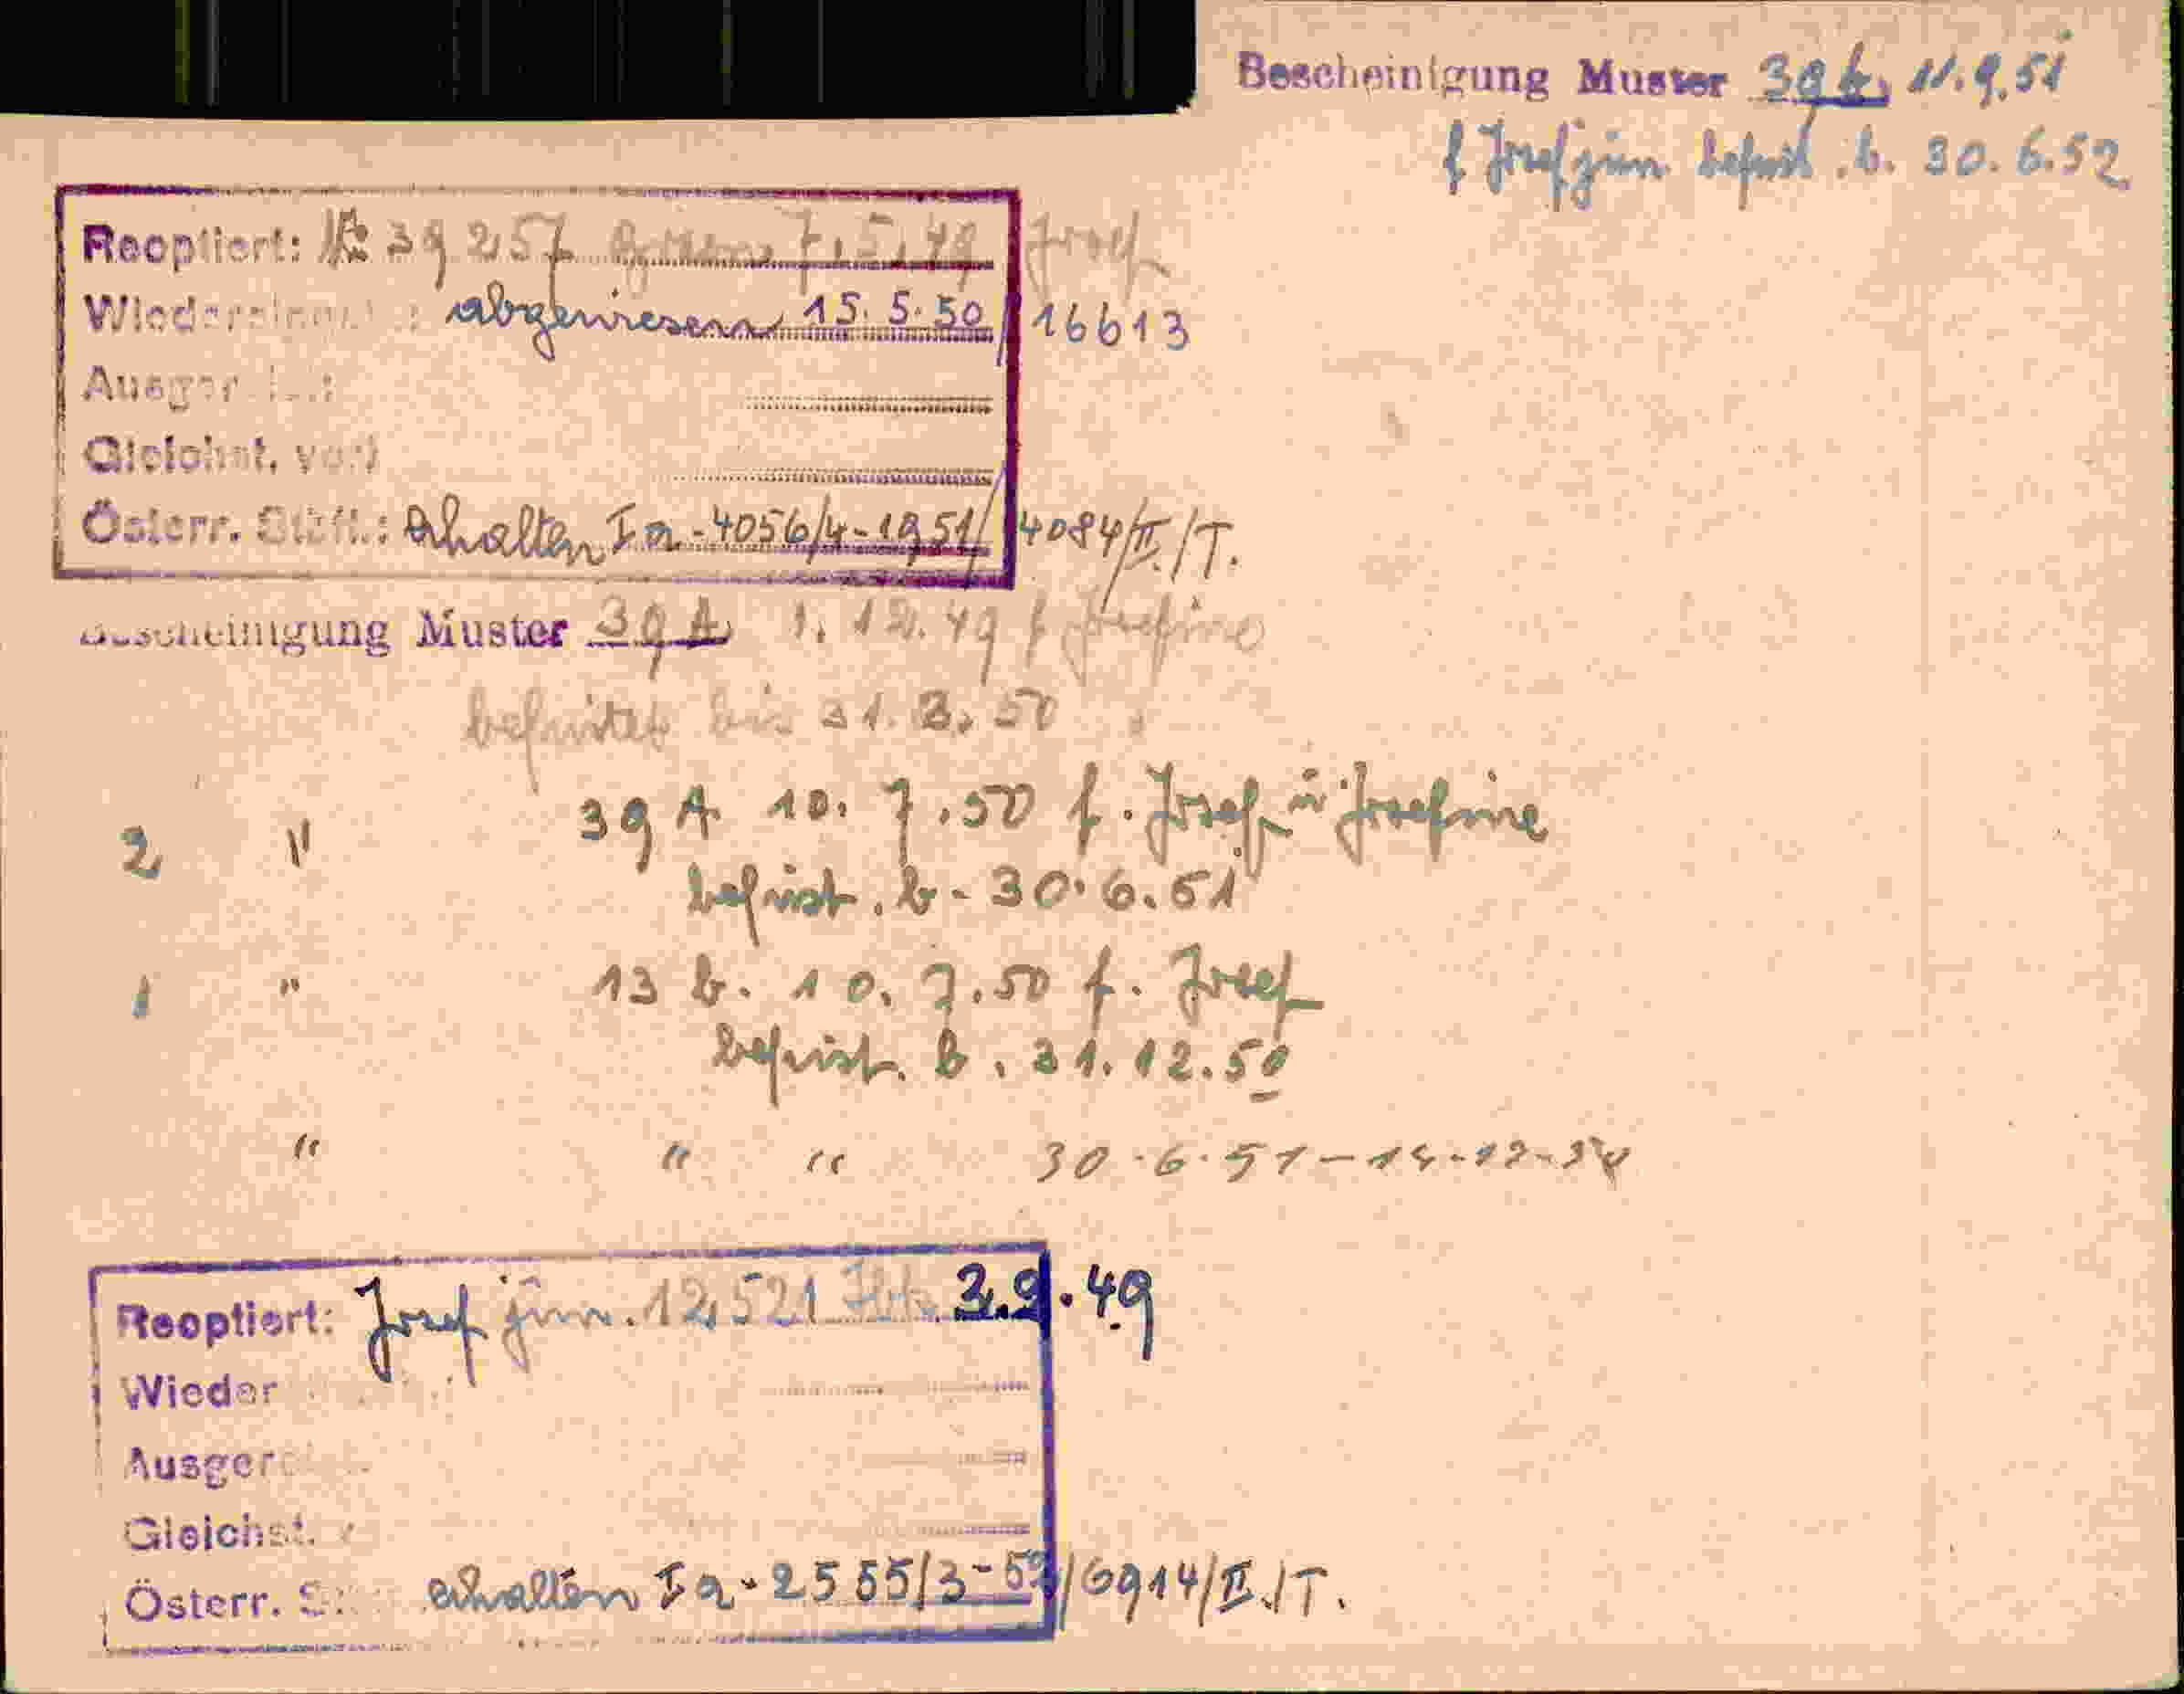 Bescheinigung Muster 39 b, 11.9.51
f Josef jun. befrist. b. 30.6.52
Reoptiert: № 39257 7.5.49 Josef
abgewiesen 15.5.50/16613
Gleichst.
Österr. erhalten Ia-4056/4-1951/4084/II./T.
Bescheinigung Muster 39 A 1.12.49 f Josefine
befristet bis 31.3.50
2 " 39 A 10.7.50 f. Josef u Josefine
befrist. b. 30.6.51
1 " 13 b. 10.7.50 f. Josef
befrist. b. 31.12.50
" " " 30.6.51
Reoptiert: Josef jun. 12521 3.9.49
Wieder
Ausger
Gleichst.
Österr. erhalten Ia-2555/3-52/6914/II./T.